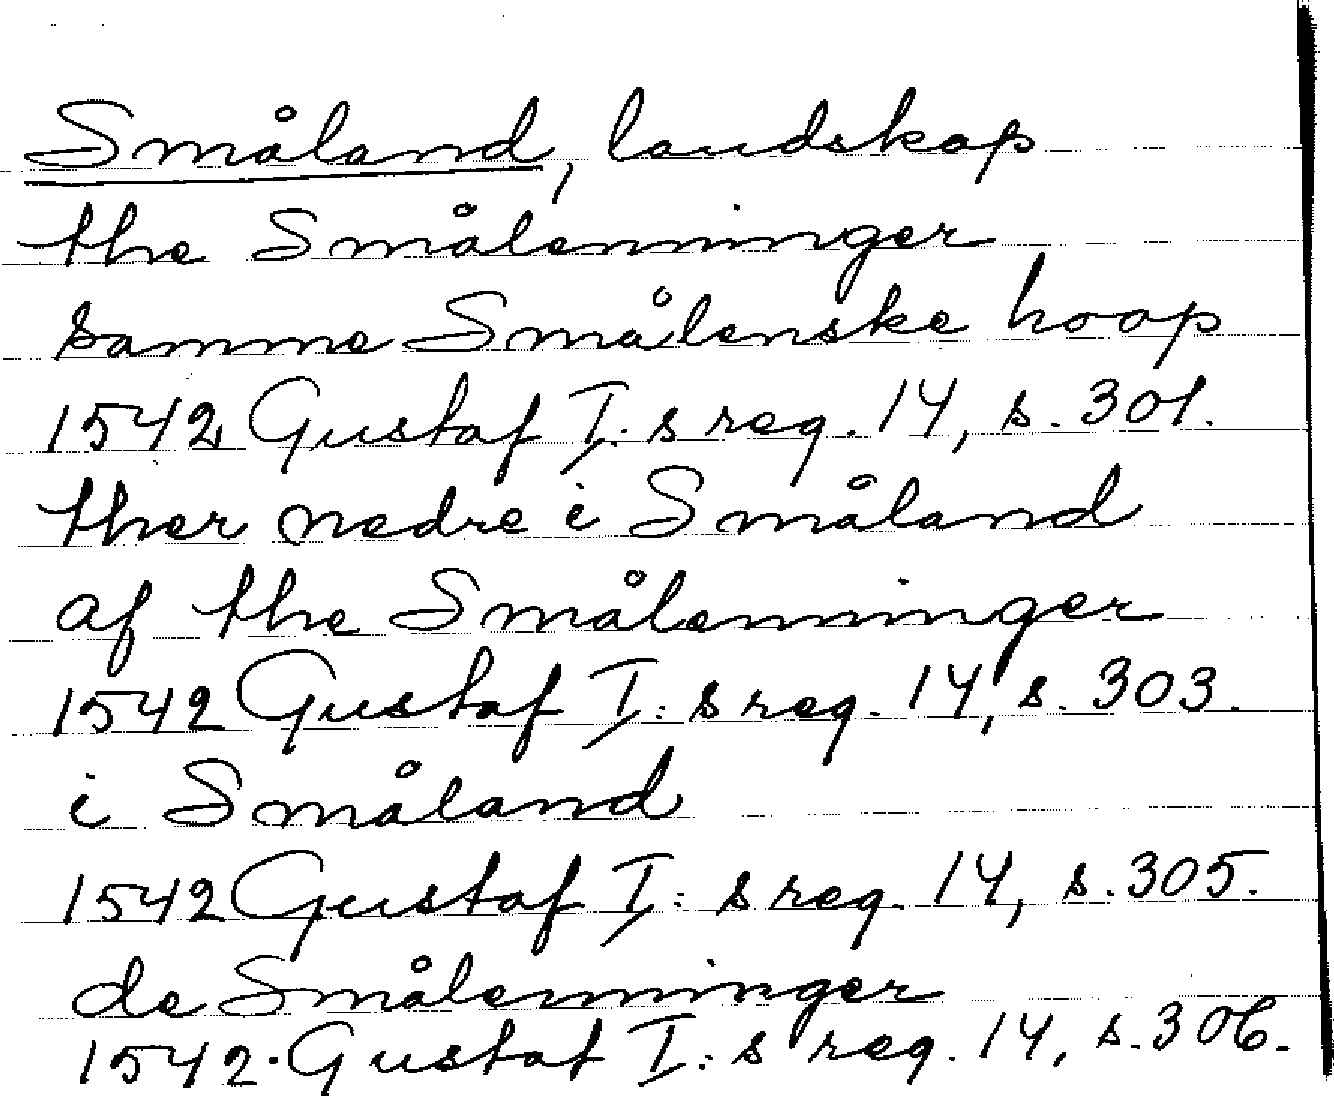 Småland, landskap
the Smålenninger
samme Smålenske hoop
1542 Gustaf I:s reg. 14, s. 301.
ther nedre i Småland
af the Smålenninger
1542 Gustaf I:s reg. 14, s. 303.
i Småland
1542 Gustaf I:s reg. 14, s. 305.
de Smålenninger
1542. Gustaf I:s reg. 14, s. 306.